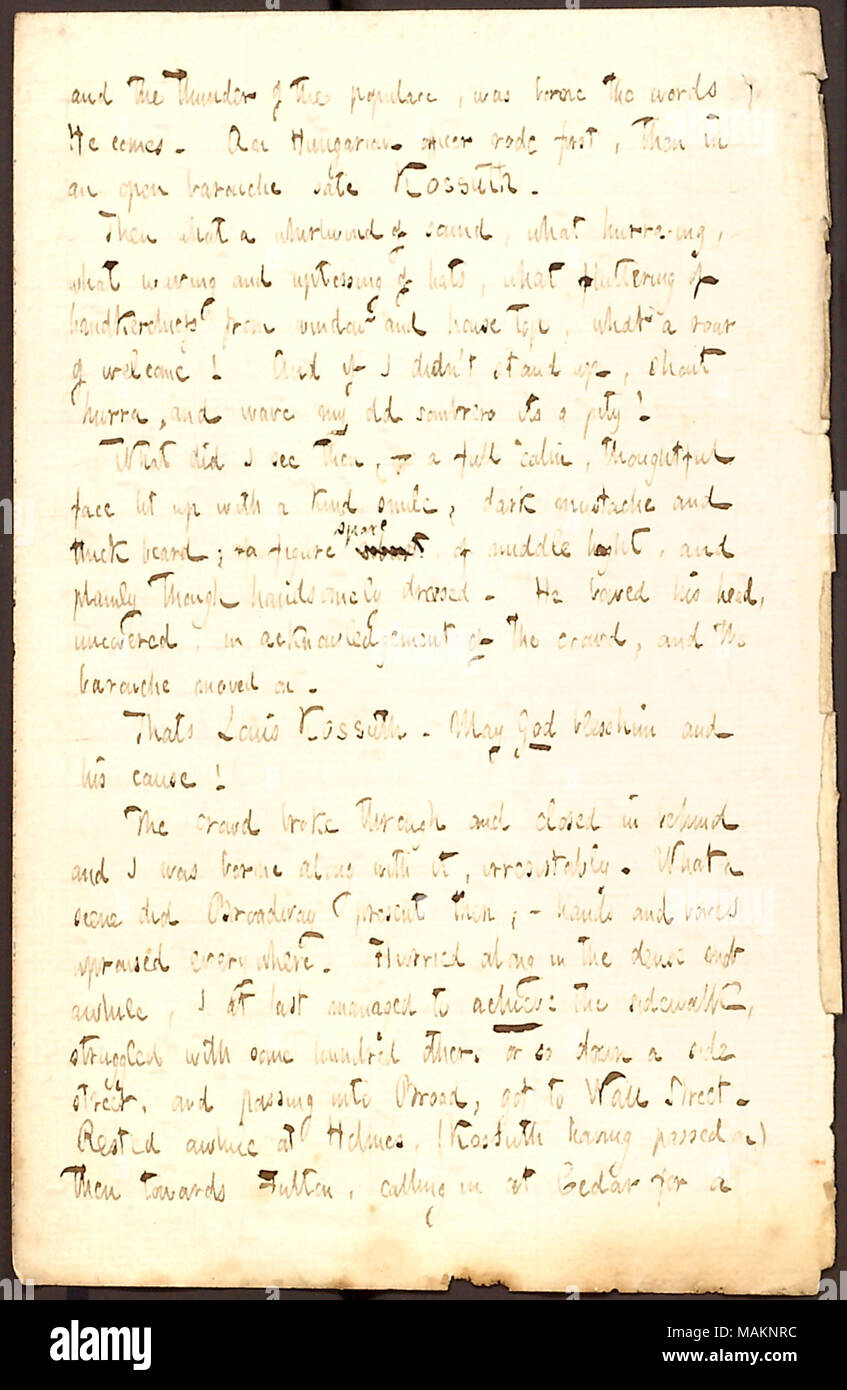 and the thunder of the populace, was borne the words
He comes. An Hungarian officer rode first, then in
an open barouche sate Kossuth.
Then what a whirlwind of sound, what hurra-ing,
what waving and uptossing of hats, what fluttering of
handkerchiefs from window and house top, what a roar
of welcome! And if I didn't stand up, shout
hurra, and wave my old sombrero its a pity!
What did I see then, — a full calm, thoughtful
face lit up with a kind smile, dark mustache and
thick beard; a figure spare of middle hight, and
plainly though handsomely dressed. He bowed his head,
uncovered, in acknowledgement of the crowd, and the
barouche moved on.
Thats Louis Kossuth. May God bless him and
his cause!
The crowd broke through and closed in behind
and I was borne along with it, irresistably. What a
scene did Broadway present then; — hands and voices
upraised everywhere. Hurried along in the dense mob
awhile, I at last managed to achieve the sidewalk,
struggled with some hundred others or so down a side
street, and passing into Broad, got to Wall Street.
Rested awhile at Holmes, (Kossuth having passed on)
then towards Fulton, calling in at Cedar for a
alamy
Image ID: MAKNRC
www.alamy.com